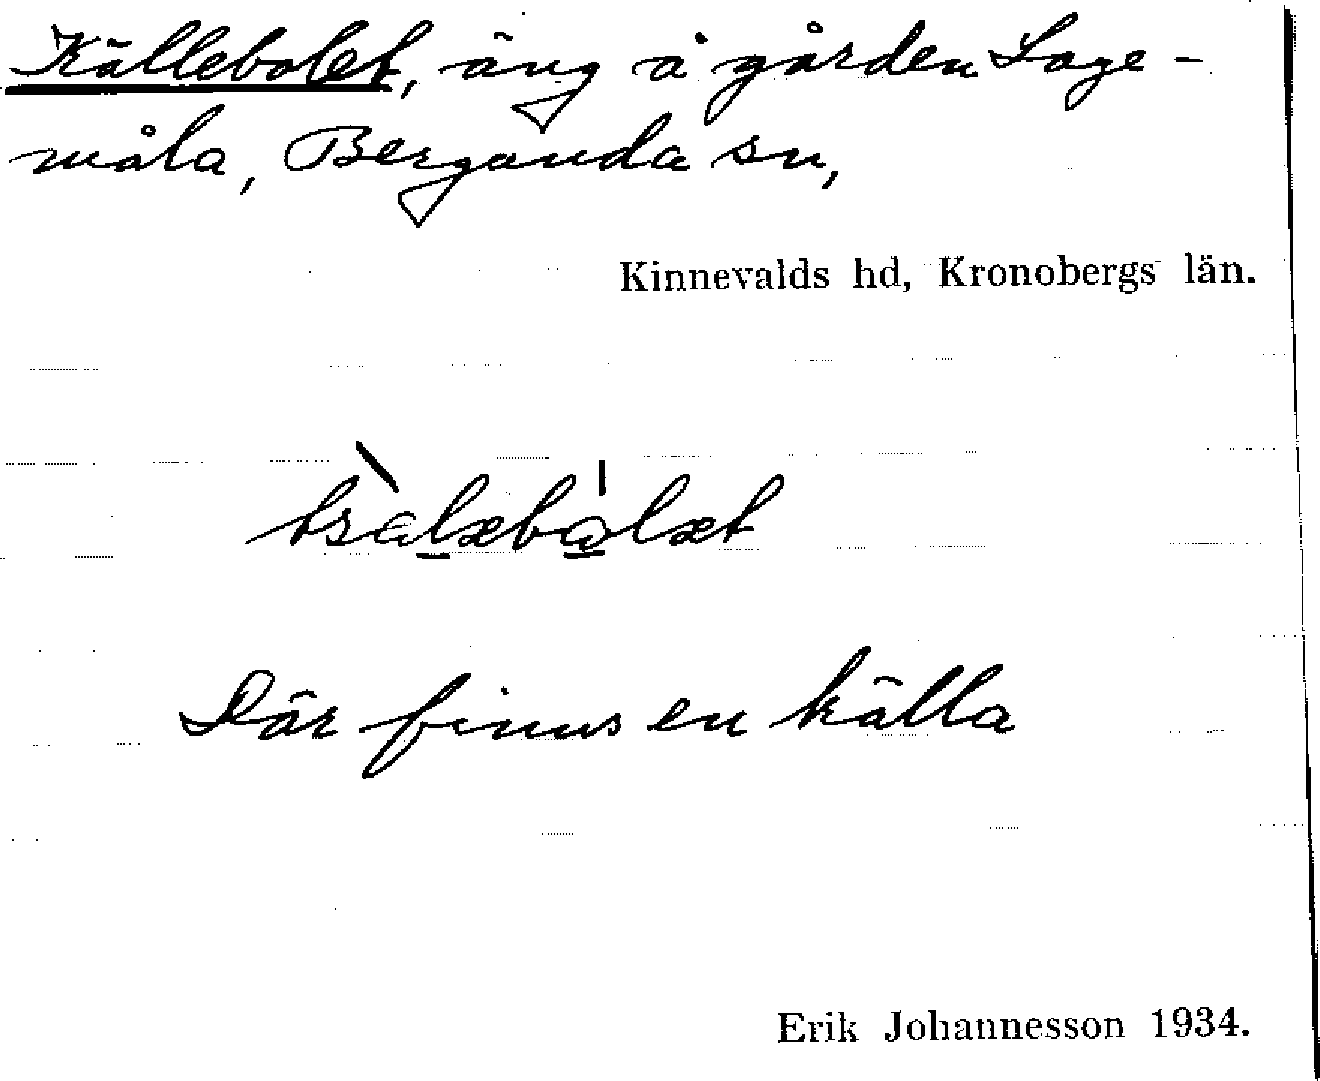 Källebolet, äng å gården Lage-
måla, Berganda sn,
Kinnevalds hd, Kronobergs län.
Där finns en källa
Erik Johannesson 1934.